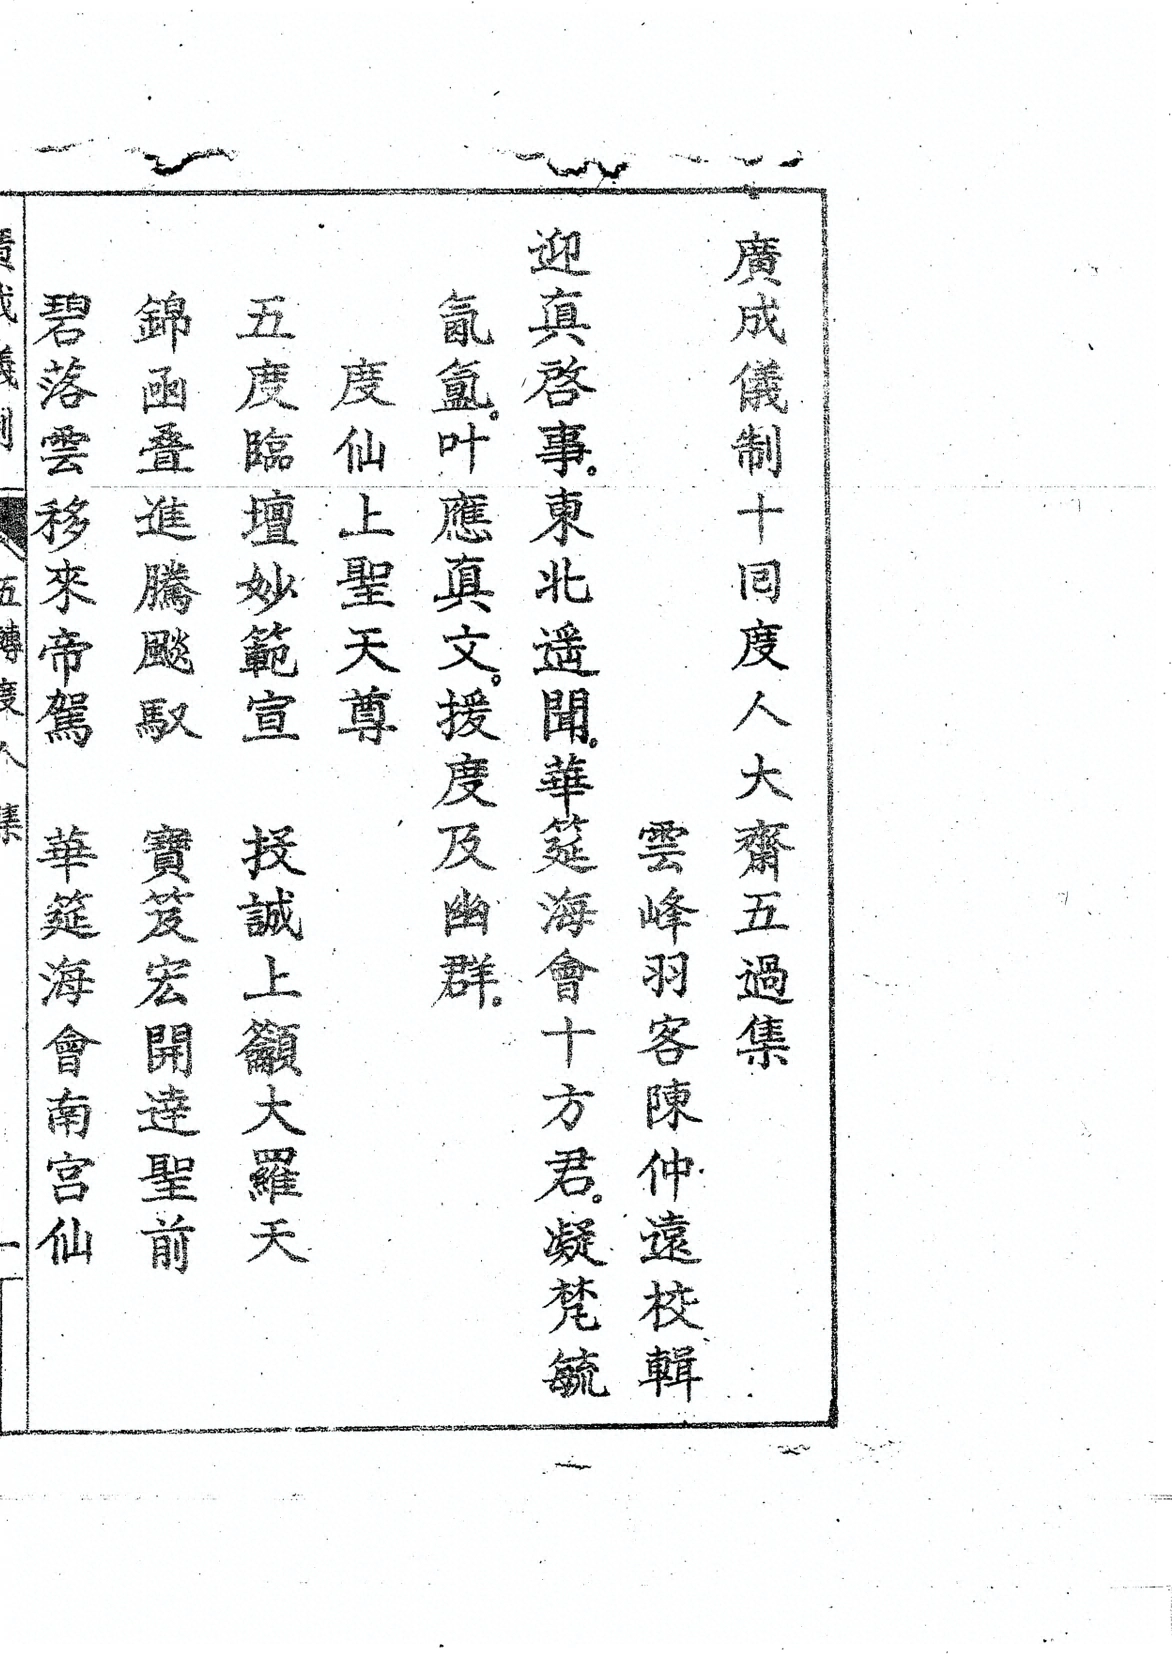 廣成儀制十囘度人大齋五過集
雲峰羽客陳仲遠校輯
迎真啓事。東北遥聞。華筵海會十方君。凝梵毓
氤氳。叶應真文。援度及幽群。
度仙上聖天尊
五度臨壇妙範宣　投誠上籲大羅天
錦函叠進騰飈馭　寶笈宏開達聖前
碧落雲移來帝駕　華筵海會南宮仙
廣成儀制　五轉度人　集　一